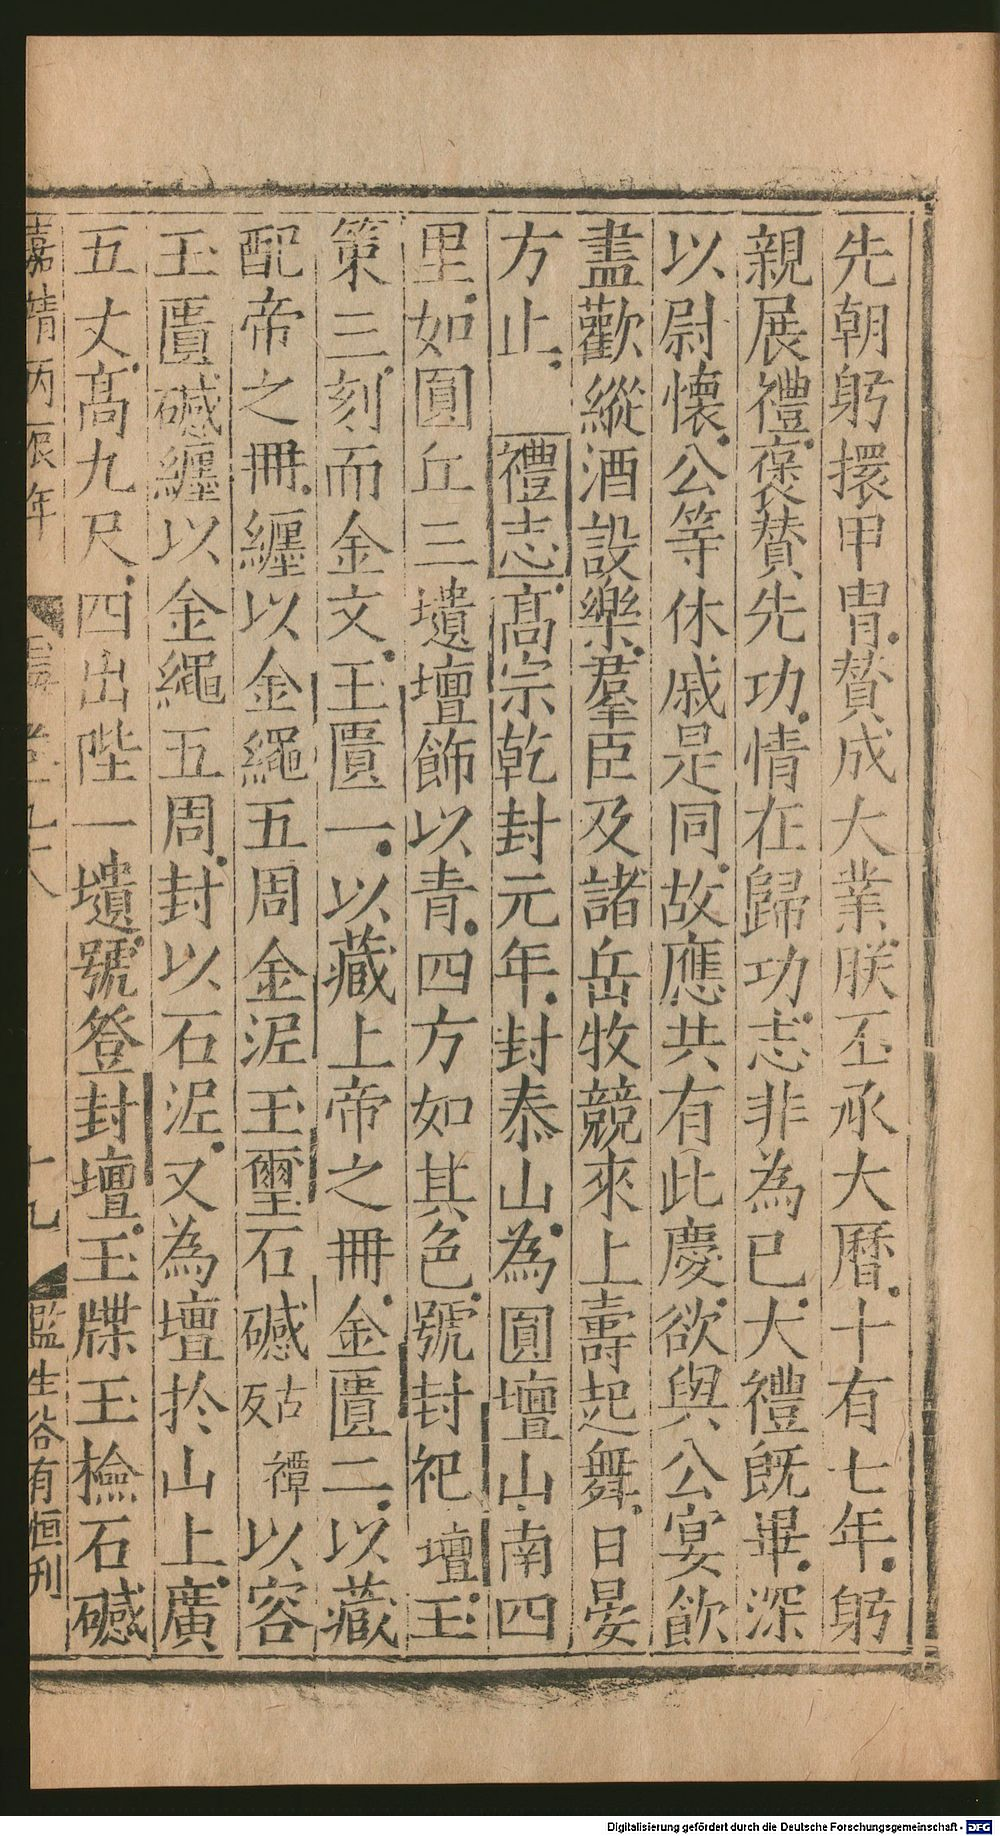 先朝躬擐甲胄賛成大業朕丕承大曆十有七年躬
親展禮褒賛先功情在歸功志非為己大禮既畢深
以尉懷公等休戚是同故應共有此慶欲與公宴飲
盡歡縱酒設樂羣臣及諸岳牧競來上壽起舞日晏
方止 禮志高宗乾封元年封泰山為圓壇山南四
里如圓丘三壝壇飾以青四方如其色號封祀壇玉
策三刻而金文玉匱一以藏上帝之冊金匱二以藏
配帝之冊纏以金繩五周金泥玉璽石䃭古禫以容
玉匱䃭纏以金繩五周封以石泥又為壇於山上廣
五丈高九尺四出陛一壝號登封壇玉牒玉檢石䃭
嘉靖丙辰年 十九 監生谷有恒刊
Digitalisierung gefördert durch die Deutsche Forschungsgemeinschaft - DFG